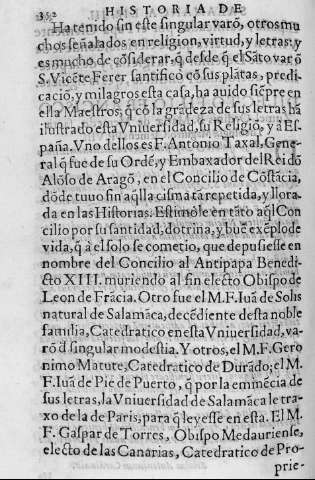 352 HISTORIA DE
Ha tenido sin este singular varõ, otros mu
chos señalados en religion, virtud, y letras: y
es mucho de cõsiderar, q̃ desde q̃ el Sãto varõ
S. Vicẽte Ferer santifico cõ sus platas, predi
cacio, y milagros esta casa, ha auido siẽpre en
ella Maestros, q̃ cõ la grãdeza de sus letras hã
ilustrado esta Vniuersidad, su Religiõ, y a Es-
paña. Vno dellos es F. Antonio Taxal, Gene-
ral q̃ fue de su Ordẽ, y Embaxador del Rei dõ
Alõso de Aragõ, en el Concilio de Cõstãcia,
dõde tuuo fin aq̃lla cisma tã repetida, y llora-
da en las Historias. Estimòle en tãto aq̃l Con
cilio por su santidad, dotrina, y buẽ exẽplo de
vida, q̃ à el solo se cometio, que depusiesse en
nombre del Concilio al Antipapa Benedi-
cto XIII. muriendo al fin electo Obispo de
Leon de Frãcia. Otro fue el M. F. Iuã de Solis
natural de Salamãca, decẽdiente desta noble
familia, Catedratico en esta Vniuersidad, va-
rõ d̃ singular modestia. Y otros, el M. F. Gero
nimo Matute, Catedratico de Durãdo; el M.
F. Iuã de Pie de Puerto, q̃ por la eminẽcia de
sus letras, la Vniuersidad de Salamãca le tra-
xo de la de Paris, para q̃ leyesse en esta. El M.
F. Gaspar de Torres, Obispo Medauriense,
electo de las Canarias, Catedratico de Pro-
prie-